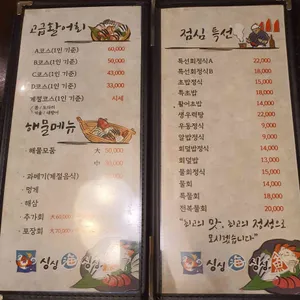 고급활어회
A코스(1인 기준) 60,000
B코스(1인 기준) 50,000
C코스(1인 기준) 43,000
D코스(1인 기준) 33,000
계절코스(1인 기준) 시세
해물메뉴
· 해물모둠 大 50,000
中
· 과메기(계절음식)
· 멍게
· 해삼
· 추가회 大60,000
· 포장회 大70,000
싱싱 海 싱싱
점심 특선
특선회정식A 22,000
특선회정식B 18,000
초밥정식 15,000
특초밥 18,000
활어초밥 14,000
생우럭탕 22,000
우동정식 9,000
알밥정식 9,000
회덮밥정식 15,000
회덮밥 13,000
물회정식 15,000
물회 14,000
특물회 18,000
전복물회 20,000
"최고의 맛, 최고의 정성으로
모시겠습니다"
싱싱 海 싱싱